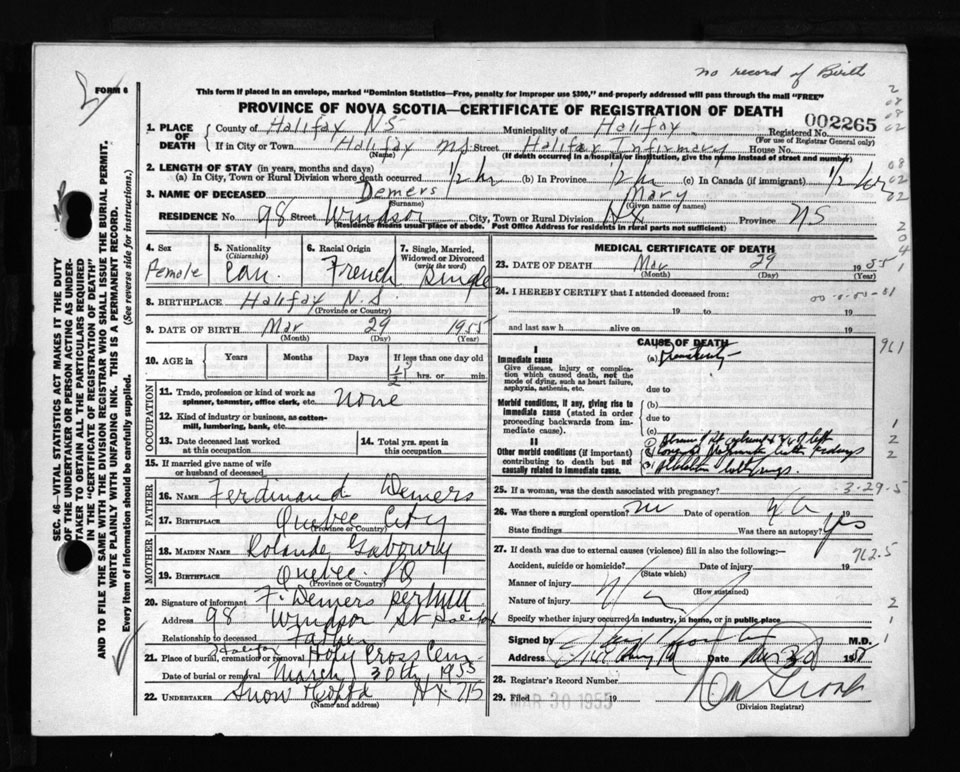 no record of Birth
FORM 6
This form if placed in an envelope, marked "Dominion Statistics—Free, penalty for improper use $300," and properly addressed will pass through the mail "FREE"
PROVINCE OF NOVA SCOTIA—CERTIFICATE OF REGISTRATION OF DEATH
002265
1. PLACE OF DEATH County of Halifax NS Municipality of Halifax Registered No.
(For use of Registrar General only)
If in City or Town Halifax NS Street Halifax Infirmary House No.
(Name) (If death occurred in a hospital or institution, give the name instead of street and number)
2. LENGTH OF STAY (in years, months and days)
(a) In City, Town or Rural Division where death occurred 1/2 hr (b) In Province 1/2 hr (c) In Canada (if immigrant) 1/2 hr
3. NAME OF DECEASED Demers Mary
(Surname) (Given name or names)
RESIDENCE No. 98 Street Windsor City, Town or Rural Division Hx Province NS
(Residence means usual place of abode. Post Office Address for residents in rural parts not sufficient)
4. Sex Female
5. Nationality (Citizenship) Can.
6. Racial Origin French
7. Single, Married, Widowed or Divorced (write the word) Single
8. BIRTHPLACE Halifax N.S.
(Province or Country)
9. DATE OF BIRTH Mar 29 1955
(Month) (Day) (Year)
10. AGE in Years Months Days If less than one day old
1/2 hrs. or min.
OCCUPATION
11. Trade, profession or kind of work as spinner, teamster, office clerk, etc. None
12. Kind of industry or business, as cotton-mill, lumbering, bank, etc.
13. Date deceased last worked at this occupation
14. Total yrs. spent in this occupation
15. If married give name of wife or husband of deceased
FATHER
16. Name Ferdinand Demers
17. Birthplace Quebec City
(Province or Country)
MOTHER
18. MAIDEN NAME Rolande Gaboury
19. Birthplace Quebec PQ
(Province or Country)
20. Signature of informant F. Demers per
Address 98 Windsor St Halifax
Relationship to deceased Father
21. Place of burial, cremation or removal Halifax Holy Cross Cem
Date of burial or removal March 30th, 1955
22. UNDERTAKER Snow & Co Ltd Hx NS
(Name and address)
MEDICAL CERTIFICATE OF DEATH
23. DATE OF DEATH Mar 29 1955
(Month) (Day) (Year)
24. I HEREBY CERTIFY that I attended deceased from:
19 to 19
and last saw h alive on 19
CAUSE OF DEATH
I
Immediate cause (a) Prematurity
Give disease, injury or complication which caused death, not the mode of dying, such as heart failure, asphyxia, asthenia, etc.
due to
Morbid conditions, if any, giving rise to immediate cause (stated in order proceeding backwards from immediate cause).
(b)
due to
(c)
II
Other morbid conditions (if important) contributing to death but not causally related to immediate cause.
25. If a woman, was the death associated with pregnancy?
3-29-5
26. Was there a surgical operation? no Date of operation
State findings Was there an autopsy? yes
27. If death was due to external causes (violence) fill in also the following:—
Accident, suicide or homicide? Date of injury 19
(State which)
Manner of injury
(How sustained)
Nature of injury
Specify whether injury occurred in industry, in home, or in public place
Signed by M.D.
Address Date 19
28. Registrar's Record Number
29. Filed MAR 30 1955 19
(Division Registrar)
961
762.5
SEC. 46—VITAL STATISTICS ACT MAKES IT THE DUTY
OF THE UNDERTAKER OR PERSON ACTING AS UNDER-
TAKER TO OBTAIN ALL THE PARTICULARS REQUIRED
IN THE "CERTIFICATE OF REGISTRATION OF DEATH"
AND TO FILE THE SAME WITH THE DIVISION REGISTRAR WHO SHALL ISSUE THE BURIAL PERMIT.
WRITE PLAINLY WITH UNFADING INK. THIS IS A PERMANENT RECORD.
Every item of information should be carefully supplied. (See reverse side for instructions.)